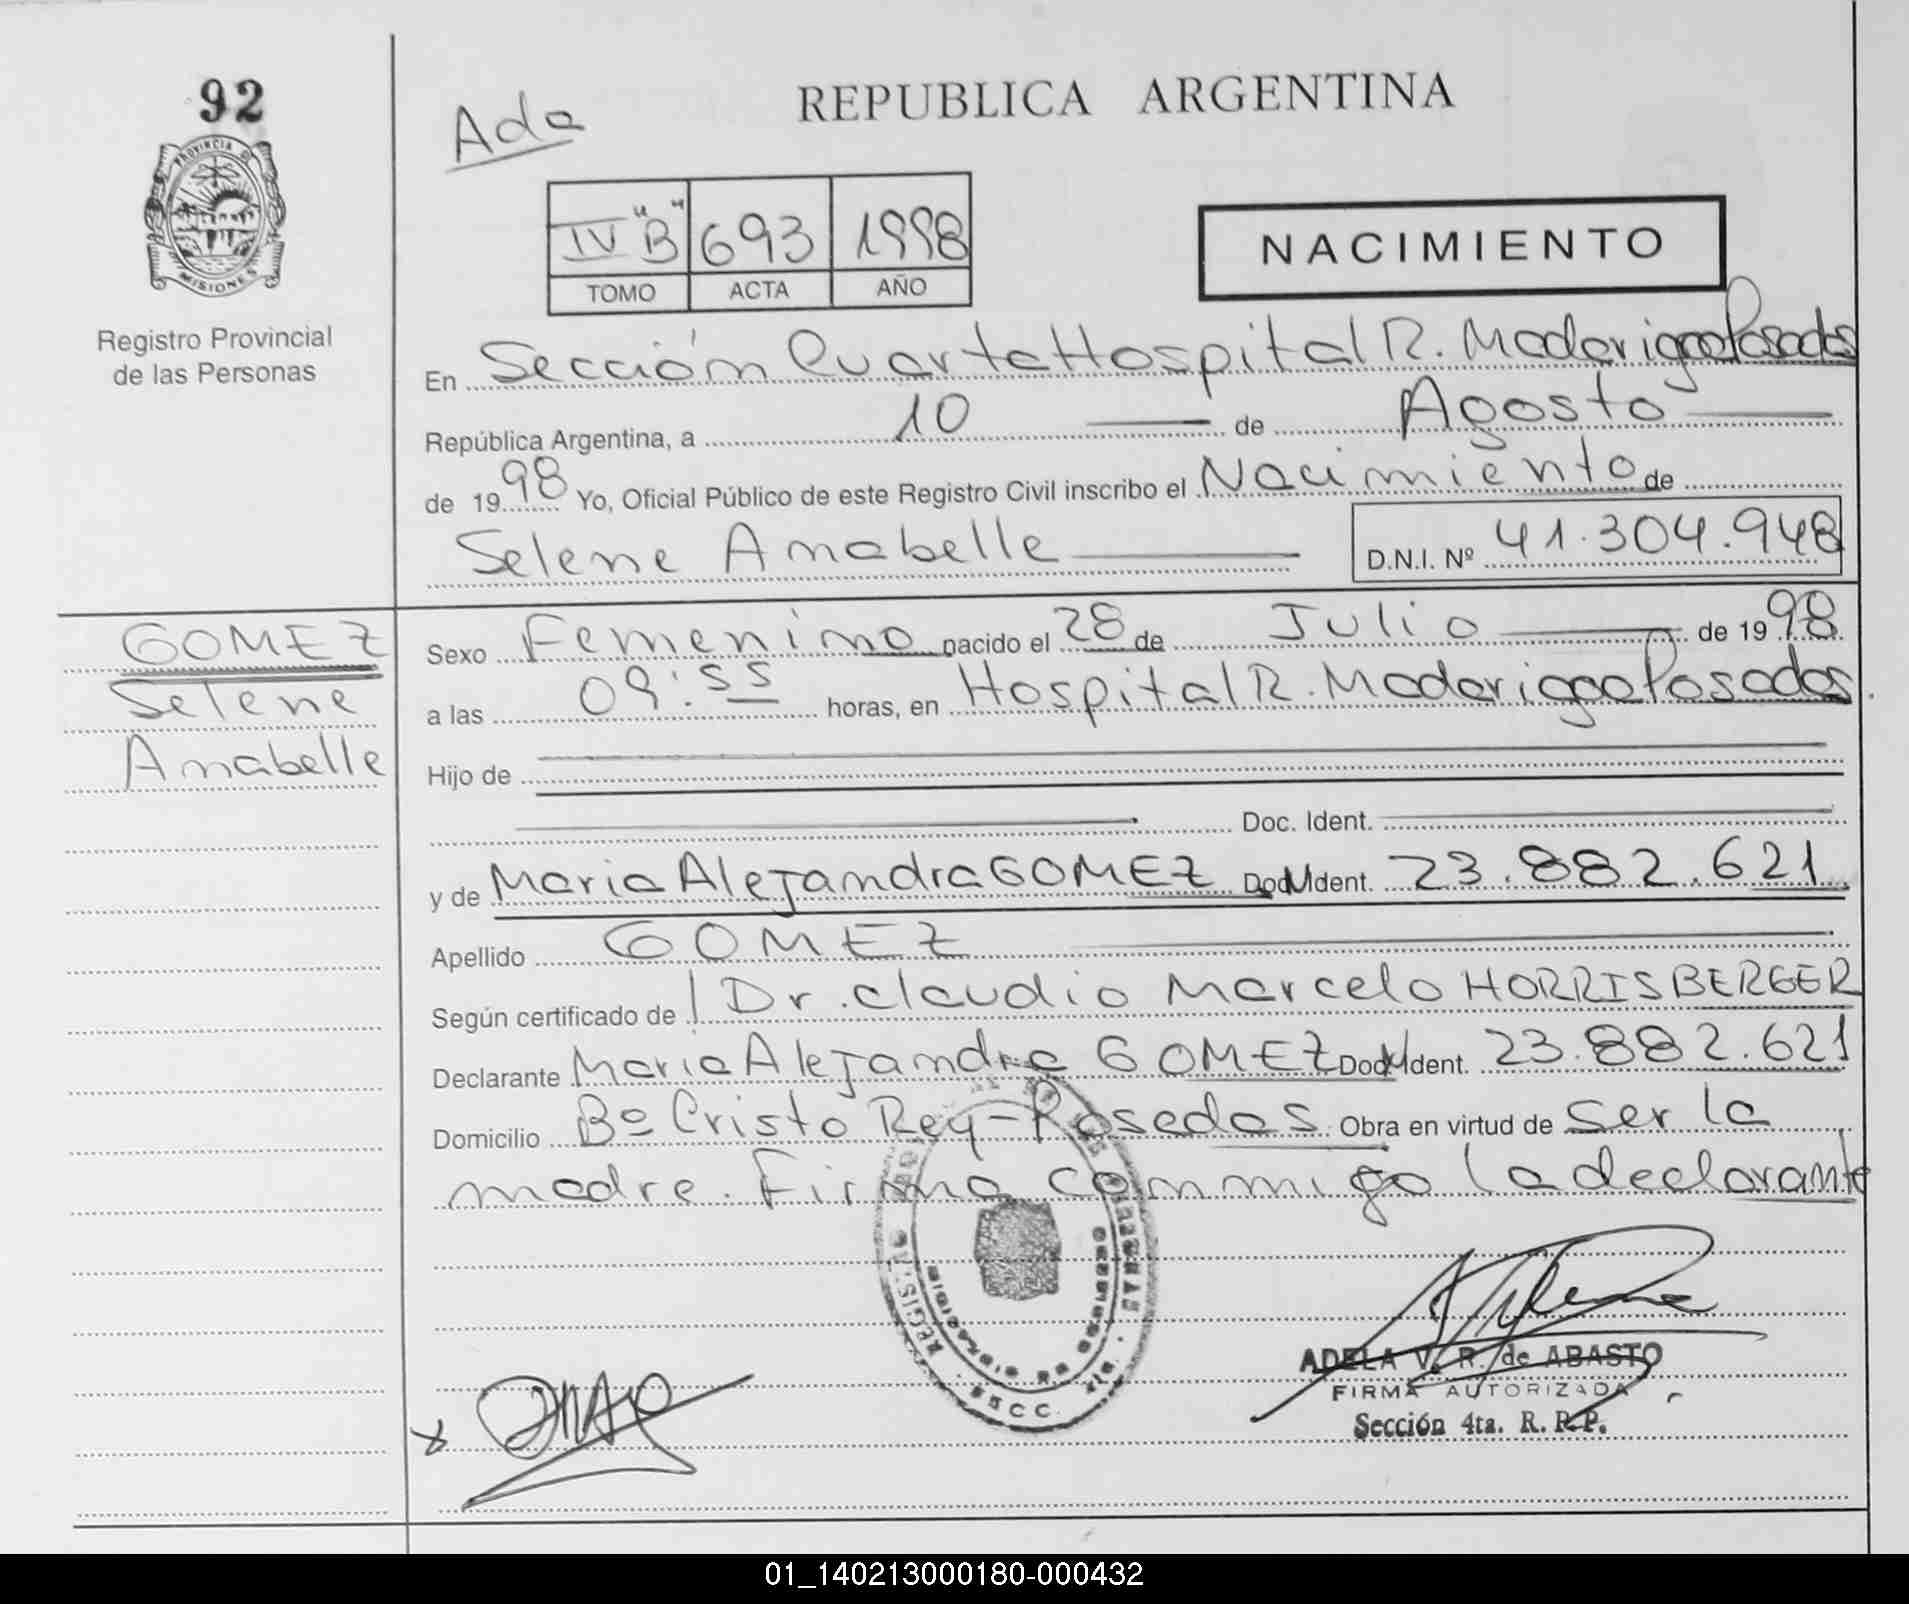 92
PROVINCIA DE
MISIONES
Registro Provincial
de las Personas
Ada
REPUBLICA ARGENTINA
IV "B" 693 1998
TOMO ACTA AÑO
NACIMIENTO
En Sección Cuarta Hospital R. Madariaga Posadas
República Argentina, a 10 de Agosto
de 1998 Yo, Oficial Público de este Registro Civil inscribo el Nacimiento de
Selene Anabelle D.N.I. Nº 41.304.948
GOMEZ
Selene
Anabelle
Sexo Femenino nacido el 28 de Julio de 1998
a las 09:55 horas, en Hospital R. Madariaga Posadas.
Hijo de
Doc. Ident.
y de Maria Alejandra GOMEZ Doc. Ident. 23.882.621
Apellido GOMEZ
Según certificado de Dr. Claudio Marcelo HORRISBERGER
Declarante Maria Alejandra GOMEZ Doc. Ident. 23.882.621
Domicilio Bº Cristo Rey - Posadas Obra en virtud de Ser la
madre. Firma conmigo la declarante
ADELA V. R. de ABASTO
FIRMA AUTORIZADA
Sección 4ta. R. R.P.
01_140213000180-000432